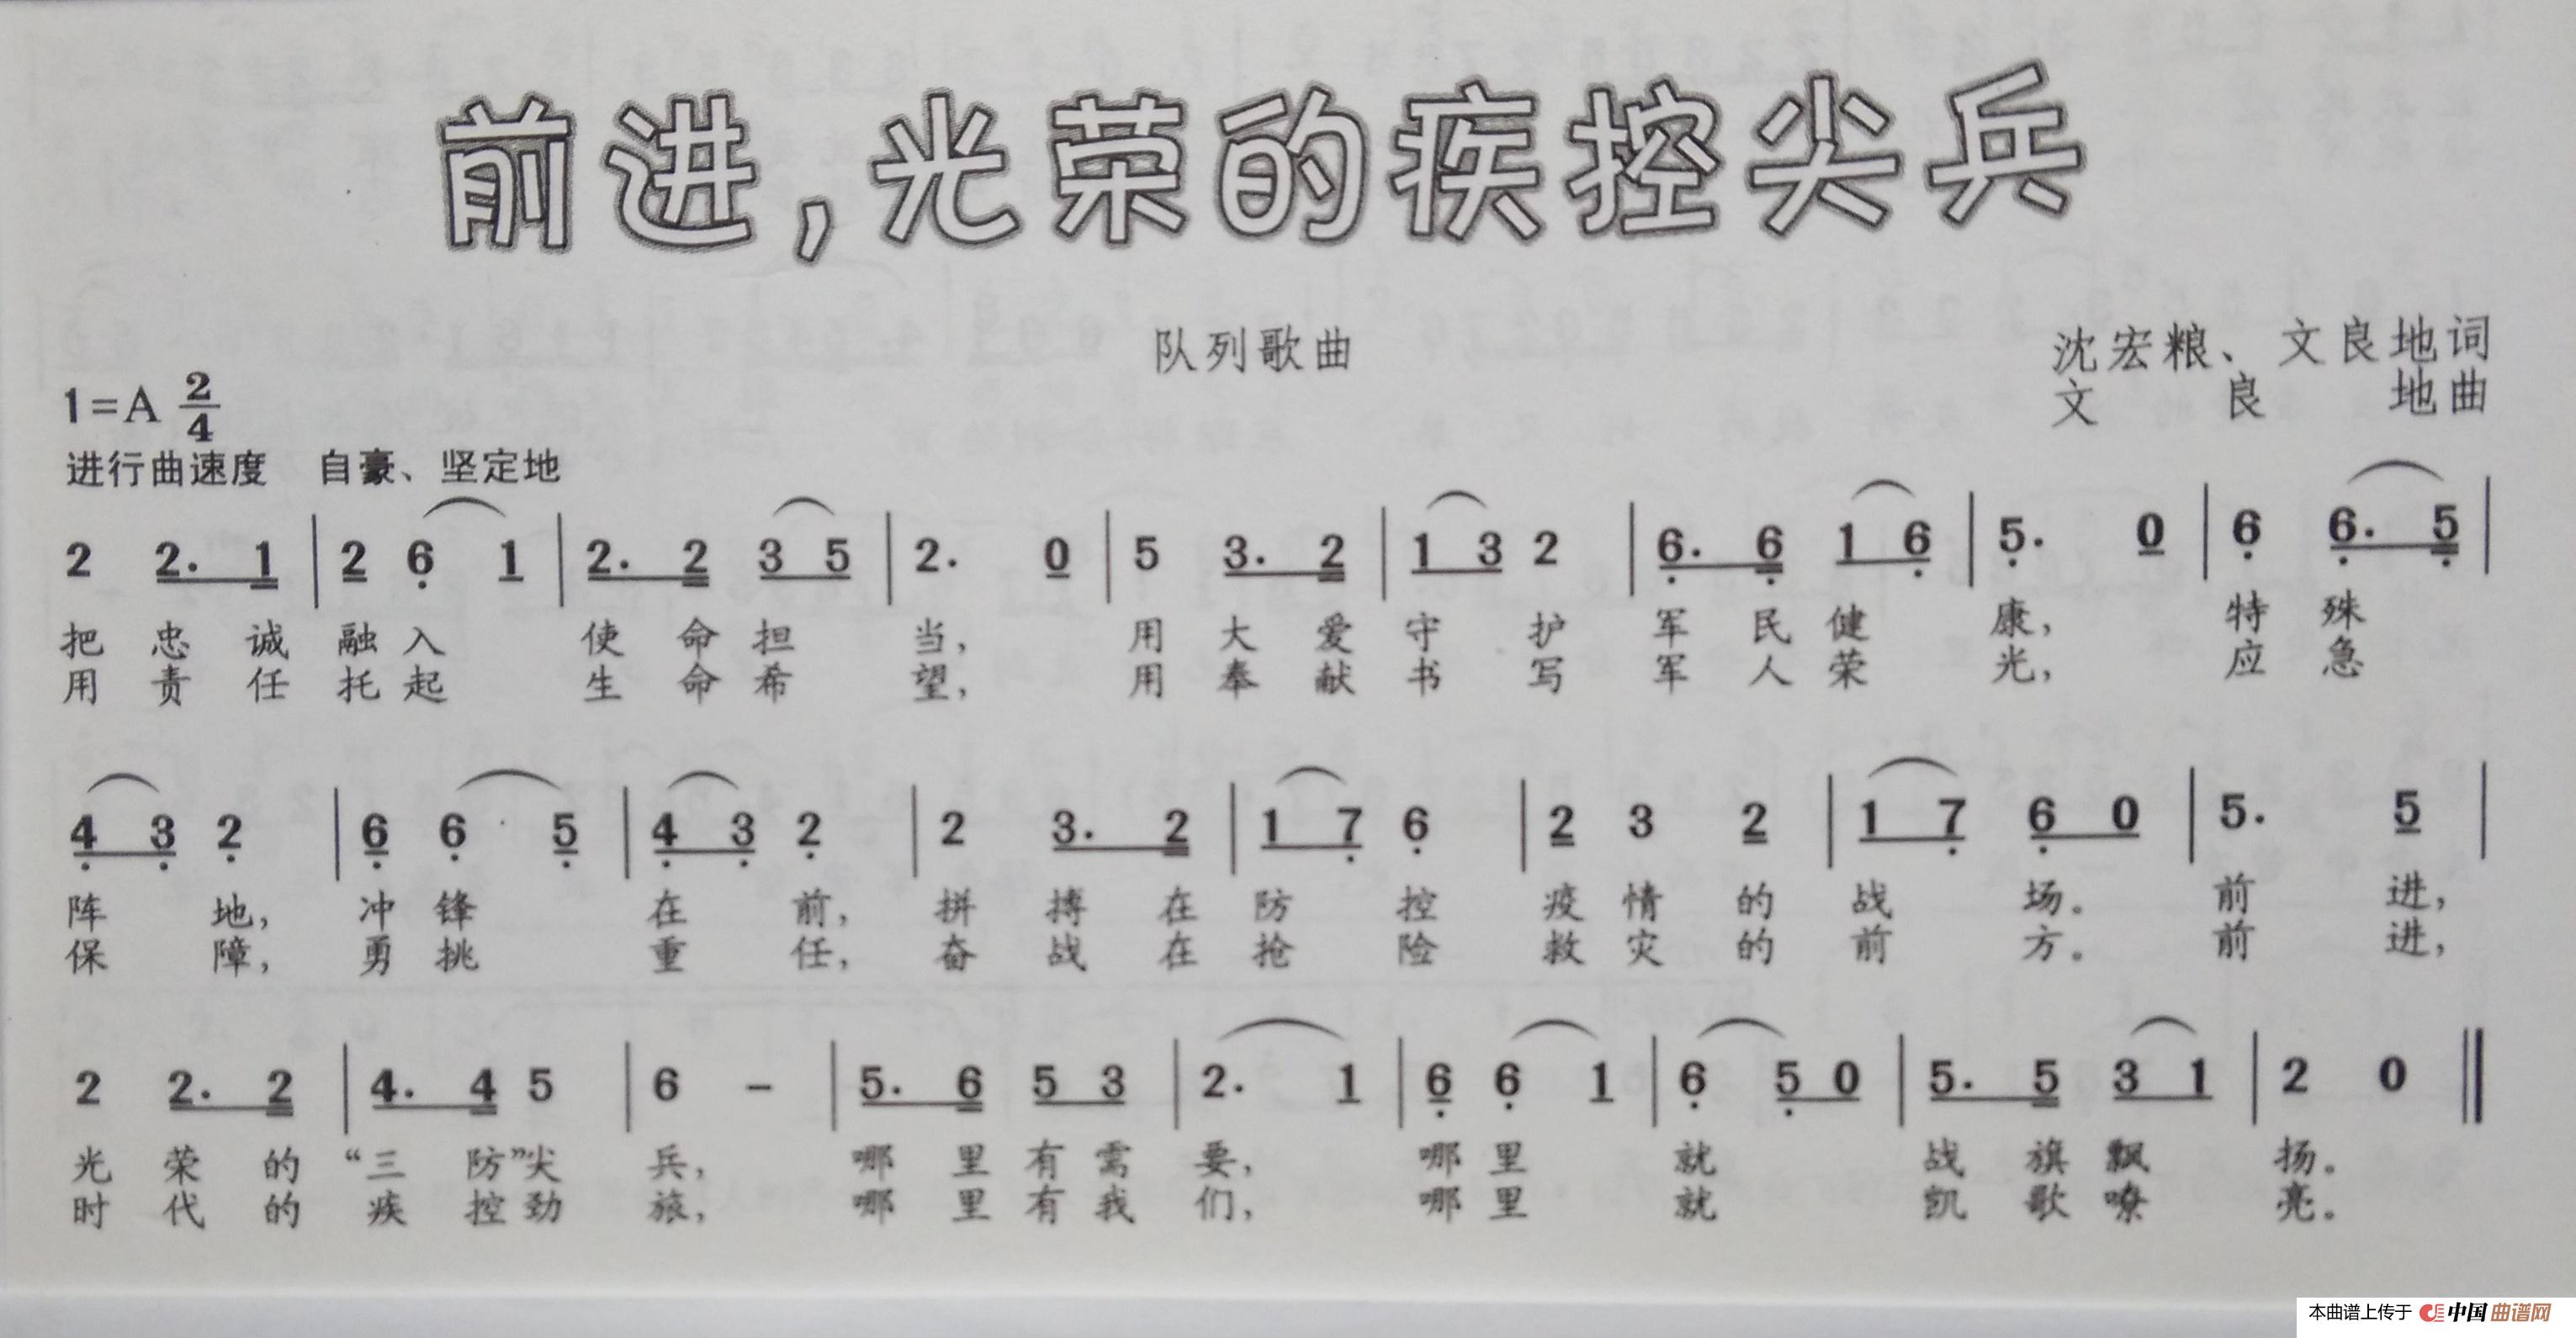 前进，光荣的疾控尖兵
队列歌曲
沈宏粮、文良地词
文良地曲
1=A 2/4
进行曲速度 自豪、坚定地
2 2. 1 | 2 6 1 | 2. 2 3 5 | 2. 0 | 5 3. 2 | 1 3 2 | 6. 6 1 6 | 5. 0 | 6 6. 5 |
把忠诚融入使命担当，用大爱守护军民健康，特殊
用责任托起生命希望，用奉献书写军人荣光，应急
4 3 2 | 6 6 5 | 4 3 2 | 2 3. 2 | 1 7 6 | 2 3 2 | 1 7 6 0 | 5. 5 |
阵地，冲锋在前，拼搏在防控疫情的战场。前进，
保障，勇挑重任，奋战在抢险救灾的前方。前进，
2 2. 2 | 4. 4 5 | 6 – | 5. 6 5 3 | 2. 1 | 6 6 1 | 6 5 0 | 5. 5 3 1 | 2 0 ‖
光荣的“三防”尖兵，哪里有需要，哪里就战旗飘扬。
时代的疾控劲旅，哪里有我们，哪里就凯歌嘹亮。
本曲谱上传于 中国曲谱网